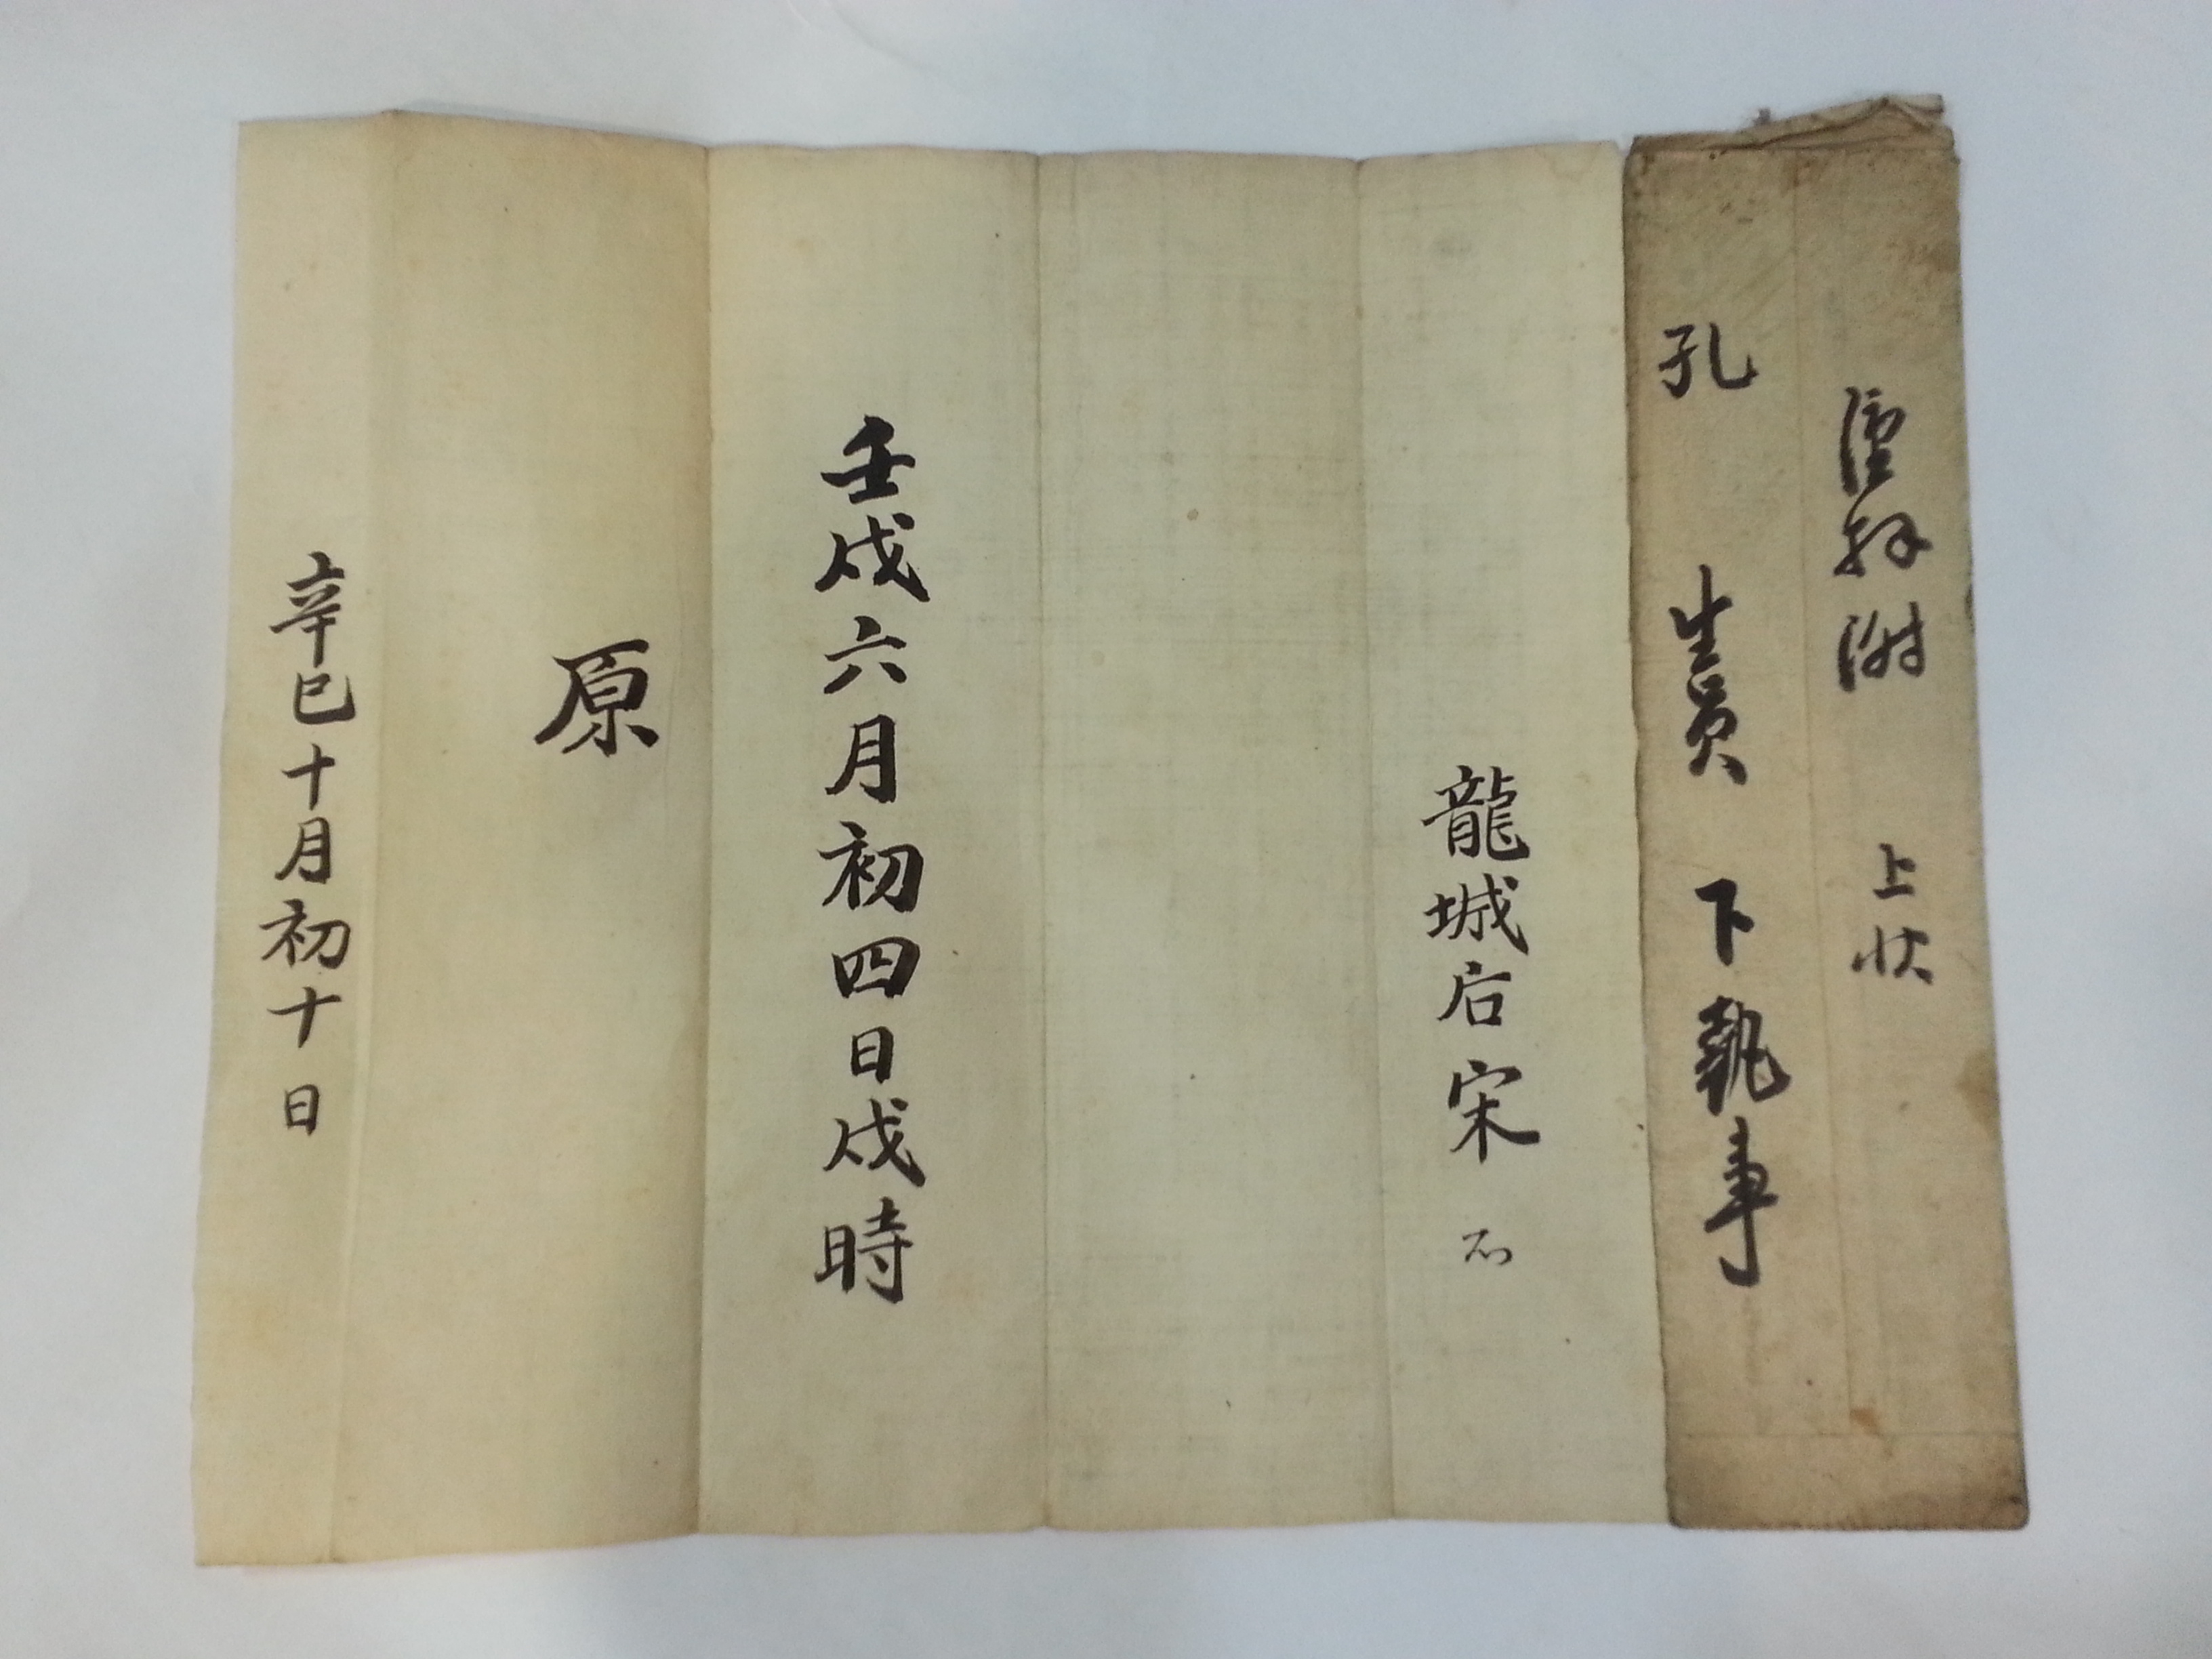 謹拜謝 上狀
孔 生員 下執事
龍城后宋
壬戌六月初四日戌時
原
辛巳十月初十日